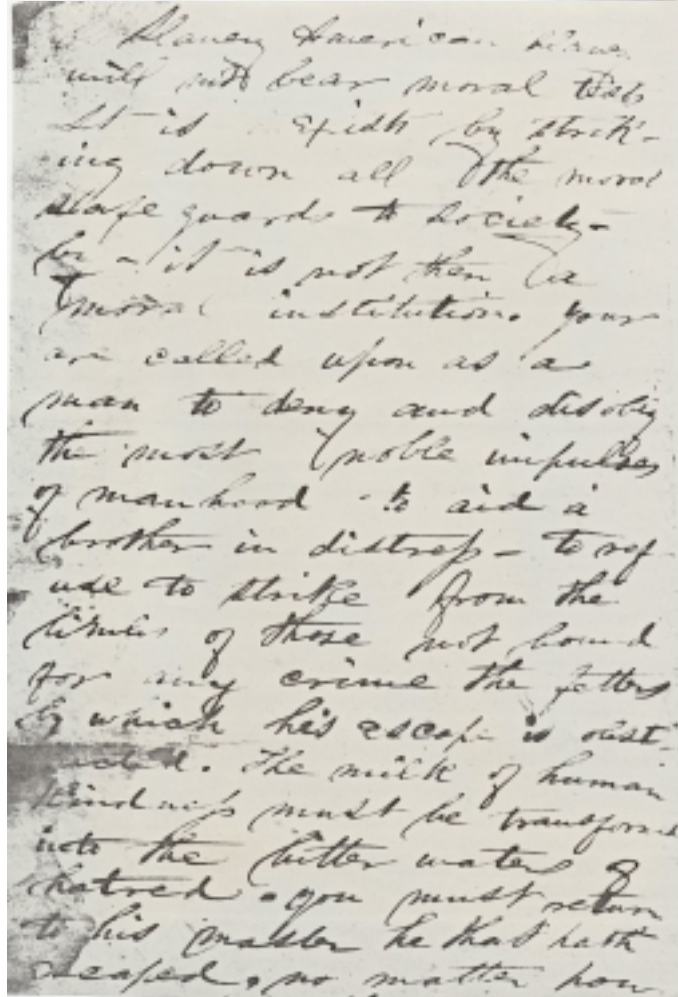 Slavery American slavery
will not bear moral test
It is exists by strik-
ing down all the moral
safe guards to society-
by - it is not then a
moral institution. your
are called upon as a
man to deny and disobey
the most noble impulses
of manhood - to aid a
brother in distress - to ref
use to strike from the
limbs of those not bound
for any crime the fetters
by which his escape is obst-
ucted. The milk of human
kindness must be transformed
into the bitter waters of
hatred - you must return
to his master he that hath
escaped, no matter how